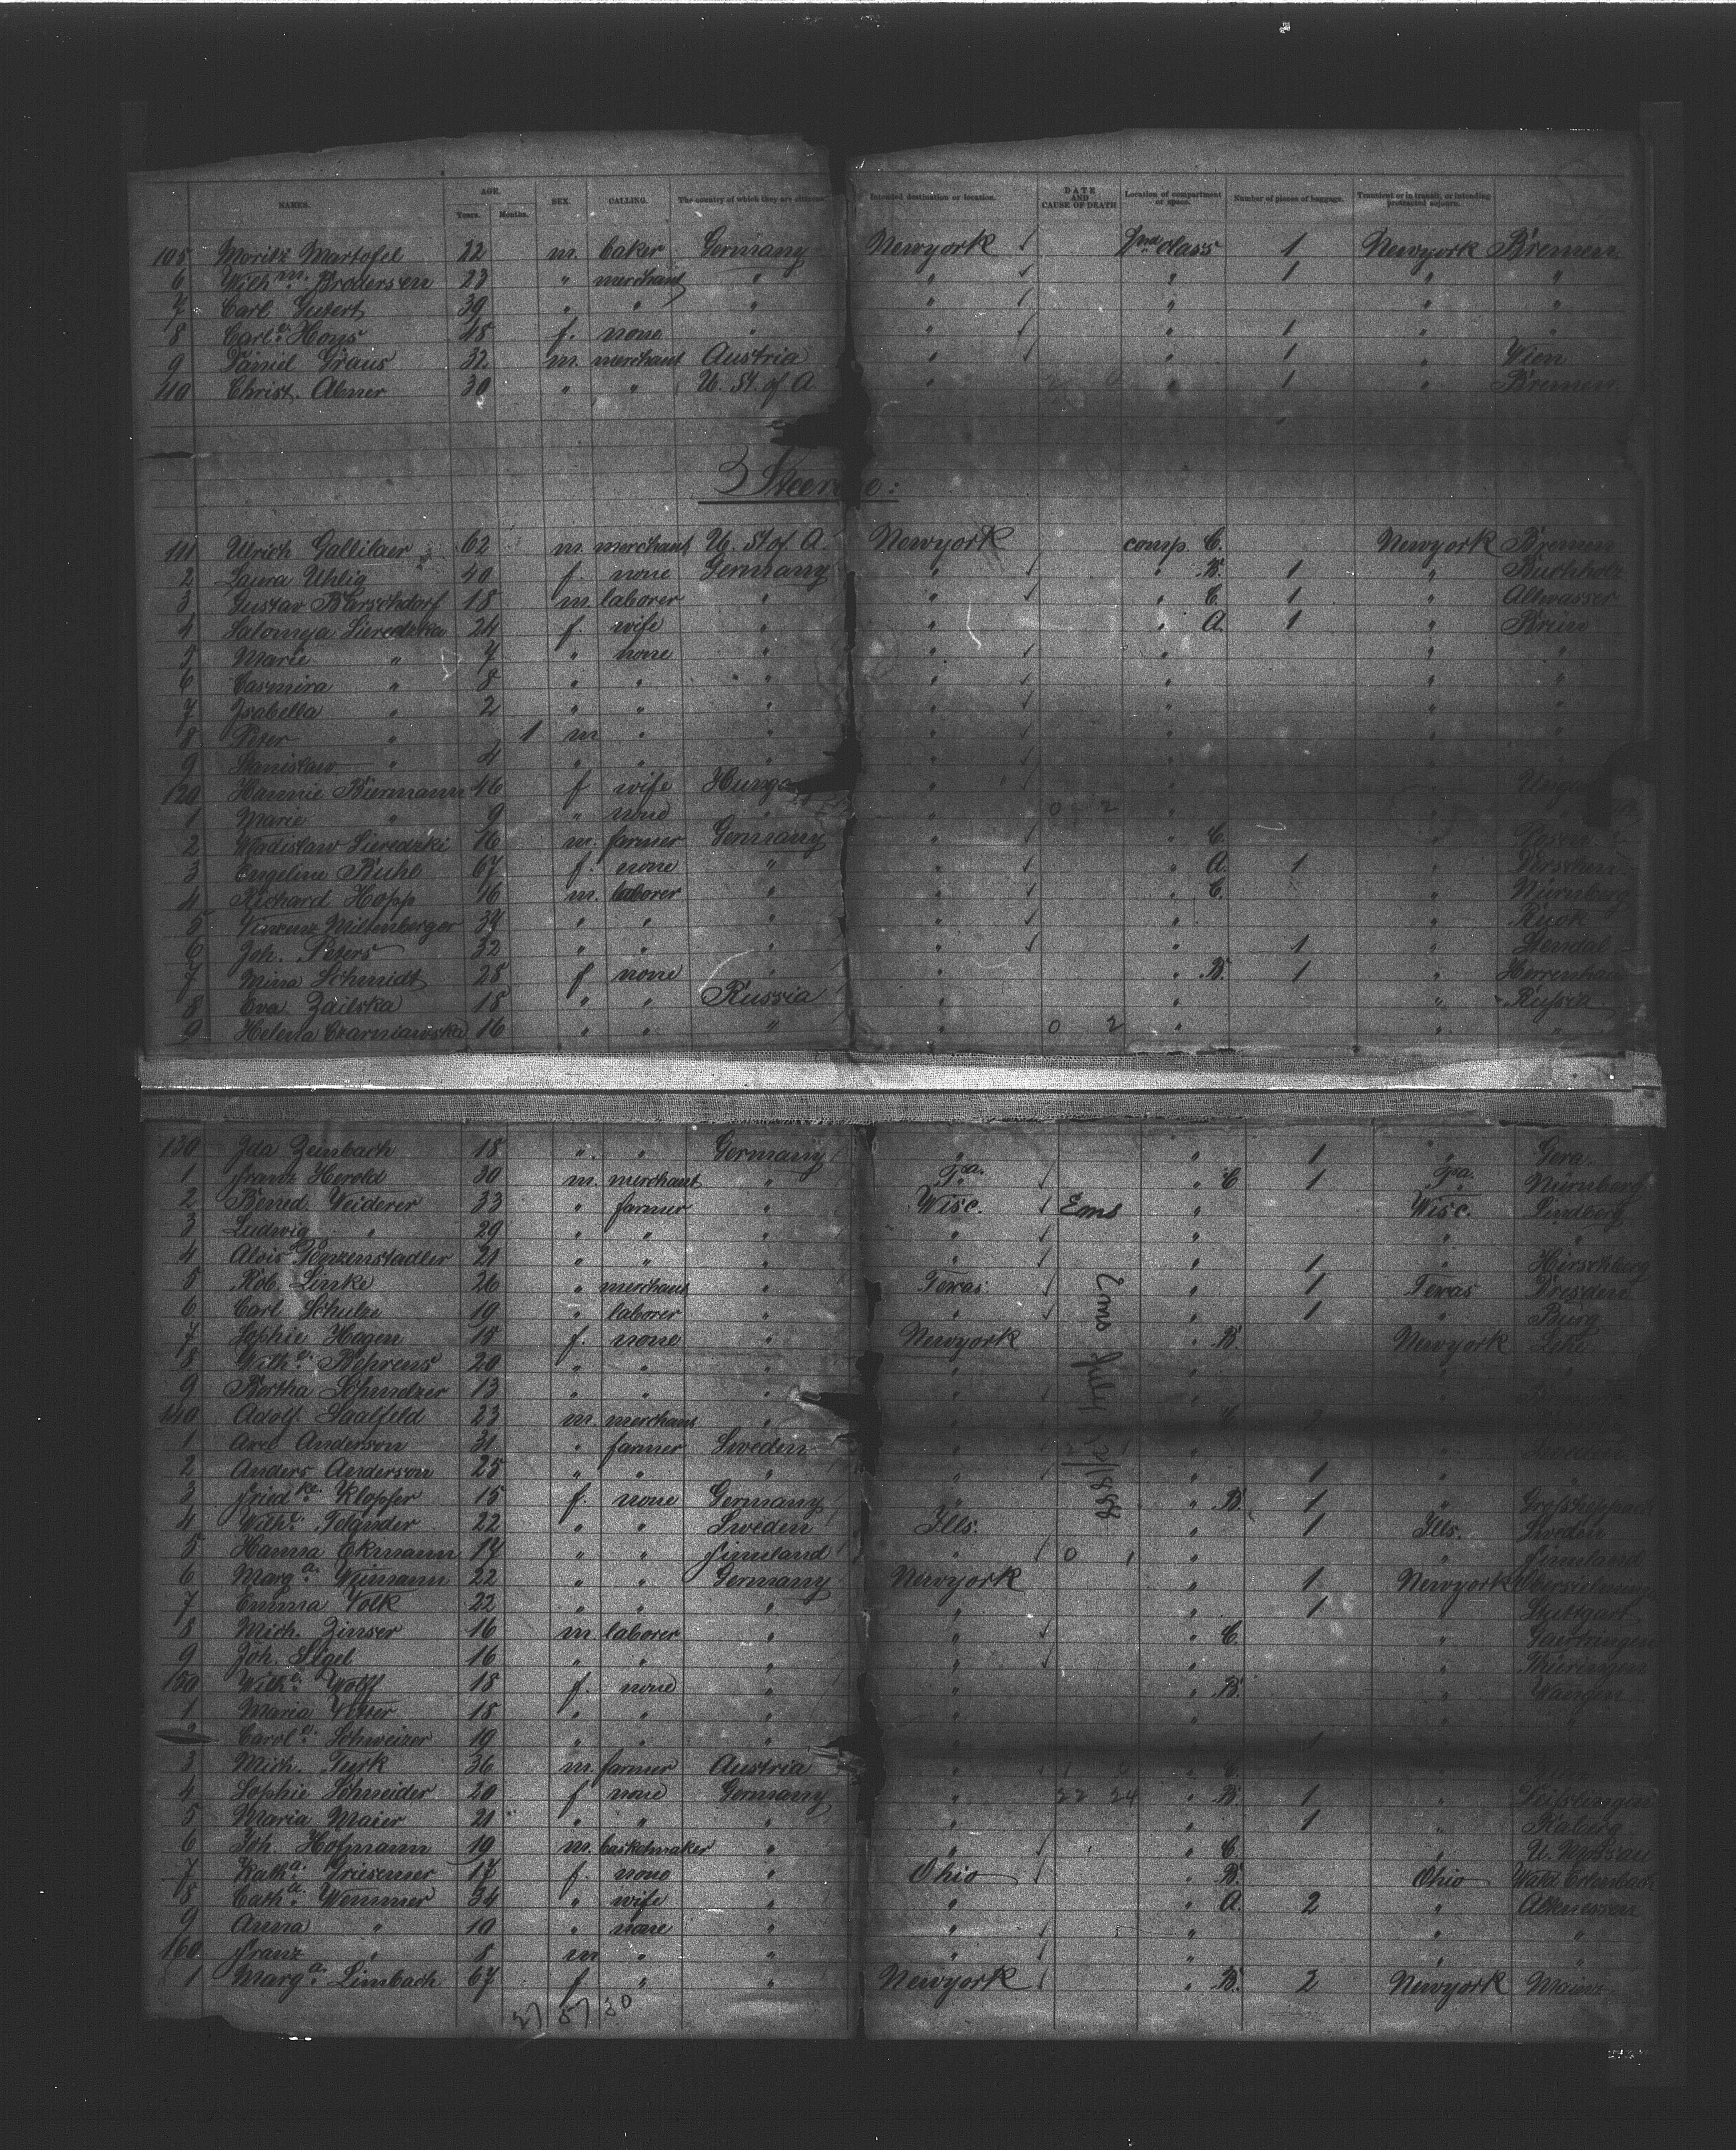 NAMES. AGE. Years. Months. SEX. CALLING. The country of which they are citizens. Intended destination or location. DATE AND CAUSE OF DEATH Location of compartment or space. Number of pieces of baggage. Transient or in transit, or intending protracted sojourn.
105 Moritz Martofel 22 m. baker Germany Newyork 2nd class 1 Newyork Bremen
6 Wilhm. Brodersen 23 " merchant " " " 1 " "
7 Carl Geifert 39 " " " " " " "
8 Carle. Hoys 48 f. none " " " 1 " "
9 Daniel Graus 32 m. merchant Austria " " 1 " Wien
110 Christ. Abner 30 " " U. St. of A " " 1 " Bremen
3 Steerage:
111 Ulrich Gallilaer 62 m. merchant U. St of A. Newyork comp. C. Newyork Bremen
2 Laura Uhlig 40 f. none Germany " " B. 1 " Buchholz
3 Gustav Barschdorf 18 m. laborer " " " C. 1 " Altwasser
4 Salomeja Sieredzka 24 f. wife " " " A 1 " Brun
5 Marie " 7 " none " " " " "
6 Casmira " 8 " " " " " " "
7 Isabella " 2 " " " " " " "
8 Peter " 1 m " " " " " "
9 Stanislaw " 4 " " " " " " "
120 Hannie Biermann 46 f wife Hunga " " "
1 Marie " 9 " none " " 0 2 " "
2 Wladislaw Sieredzki 16 m. farmer Germany " " C. " Posen
3 Engeline Ruhl 67 f. none " " " A. 1 "
4 Richard Hopp 16 m. laborer " " " C. " Nürnberg
5 Vincenz Miltenberger 34 " " " " " " Rück
6 Joh. Peters 32 " " " " " 1 " Stendal
7 Mina Schmidt 28 f none " " " B. 1 " Herrenhau
8 Eva Zailska 18 " " Russia " " " Russia
9 Helena Czarniawska 16 " " " " 0 2 " " "
130 Ida Zeinbach 18 " " Germany " " 1 " Gera
1 Franz Herold 30 m. merchant " Pa. " C 1 Pa. Nürnberg
2 Bened. Weiderer 33 " farmer " Wisc. Ems " Wisc. Lindberg
3 Ludwig " 29 " " " " " " "
4 Alois Penzenstadler 21 " " " " " 1 " Hirschberg
5 Rob. Linke 26 " merchant " Texas " 1 Texas Dresden
6 Carl Schulze 19 " laborer " " " 1 " Burg
7 Sophie Hagen 15 f. none " Newyork " B. Newyork Lehe
8 Wilhe. Behrens 20 " " " " " " "
9 Bertha Schmelzer 13 " " " "
140 Adolf Saalfeld 23 m. merchant " " " C
1 Axel Anderson 31 " farmer Sweden " " " Sweden
2 Anders Anderson 25 " " " " " 1 " "
3 Friedke. Klopfer 15 f. none Germany " " B. 1 "
4 Wilhe. Telander 22 " " Sweden Ills. " 1 Ills. Sweden
5 Hanna Ekmann 17 " " Finnland " 0 1 " " Finnland
6 Marga. Weimann 22 " " Germany Newyork " 1 Newyork
7 Emma Volk 22 " " " " " 1 " Stuttgart
8 Mich. Zinser 16 m laborer " " " C. " Gaertringen
9 Joh. Sigel 16 " " " " " " Thieringen
150 Wilhe. Wolff 18 f. none " " " B. " Wangen
1 Maria Vetter 18 " " " " " " "
2 Carole. Schweizer 19 " " " " " 1
3 Mich. Turk 36 m. farmer Austria " 1 0 " C.
4 Sophie Schneider 20 f none Germany " 22 24 " B. 1 " Deisslingen
5 Maria Maier 21 " " " " " 1 " Raberg
6 Joh. Hofmann 19 m. basketmaker " " " C. "
7 Katha. Griesemer 17 f. none " Ohio " B. Ohio Wald Erlenbach
8 Catha. Wemmer 34 " wife " " " A. 2 " Altenessen
9 Anna " 10 " none " " " " "
160 Franz " 8 m " " " " " "
1 Marga. Limbach 67 f. " " Newyork " B. 2 Newyork Mainz
Ems July 12/1888
27 57 30